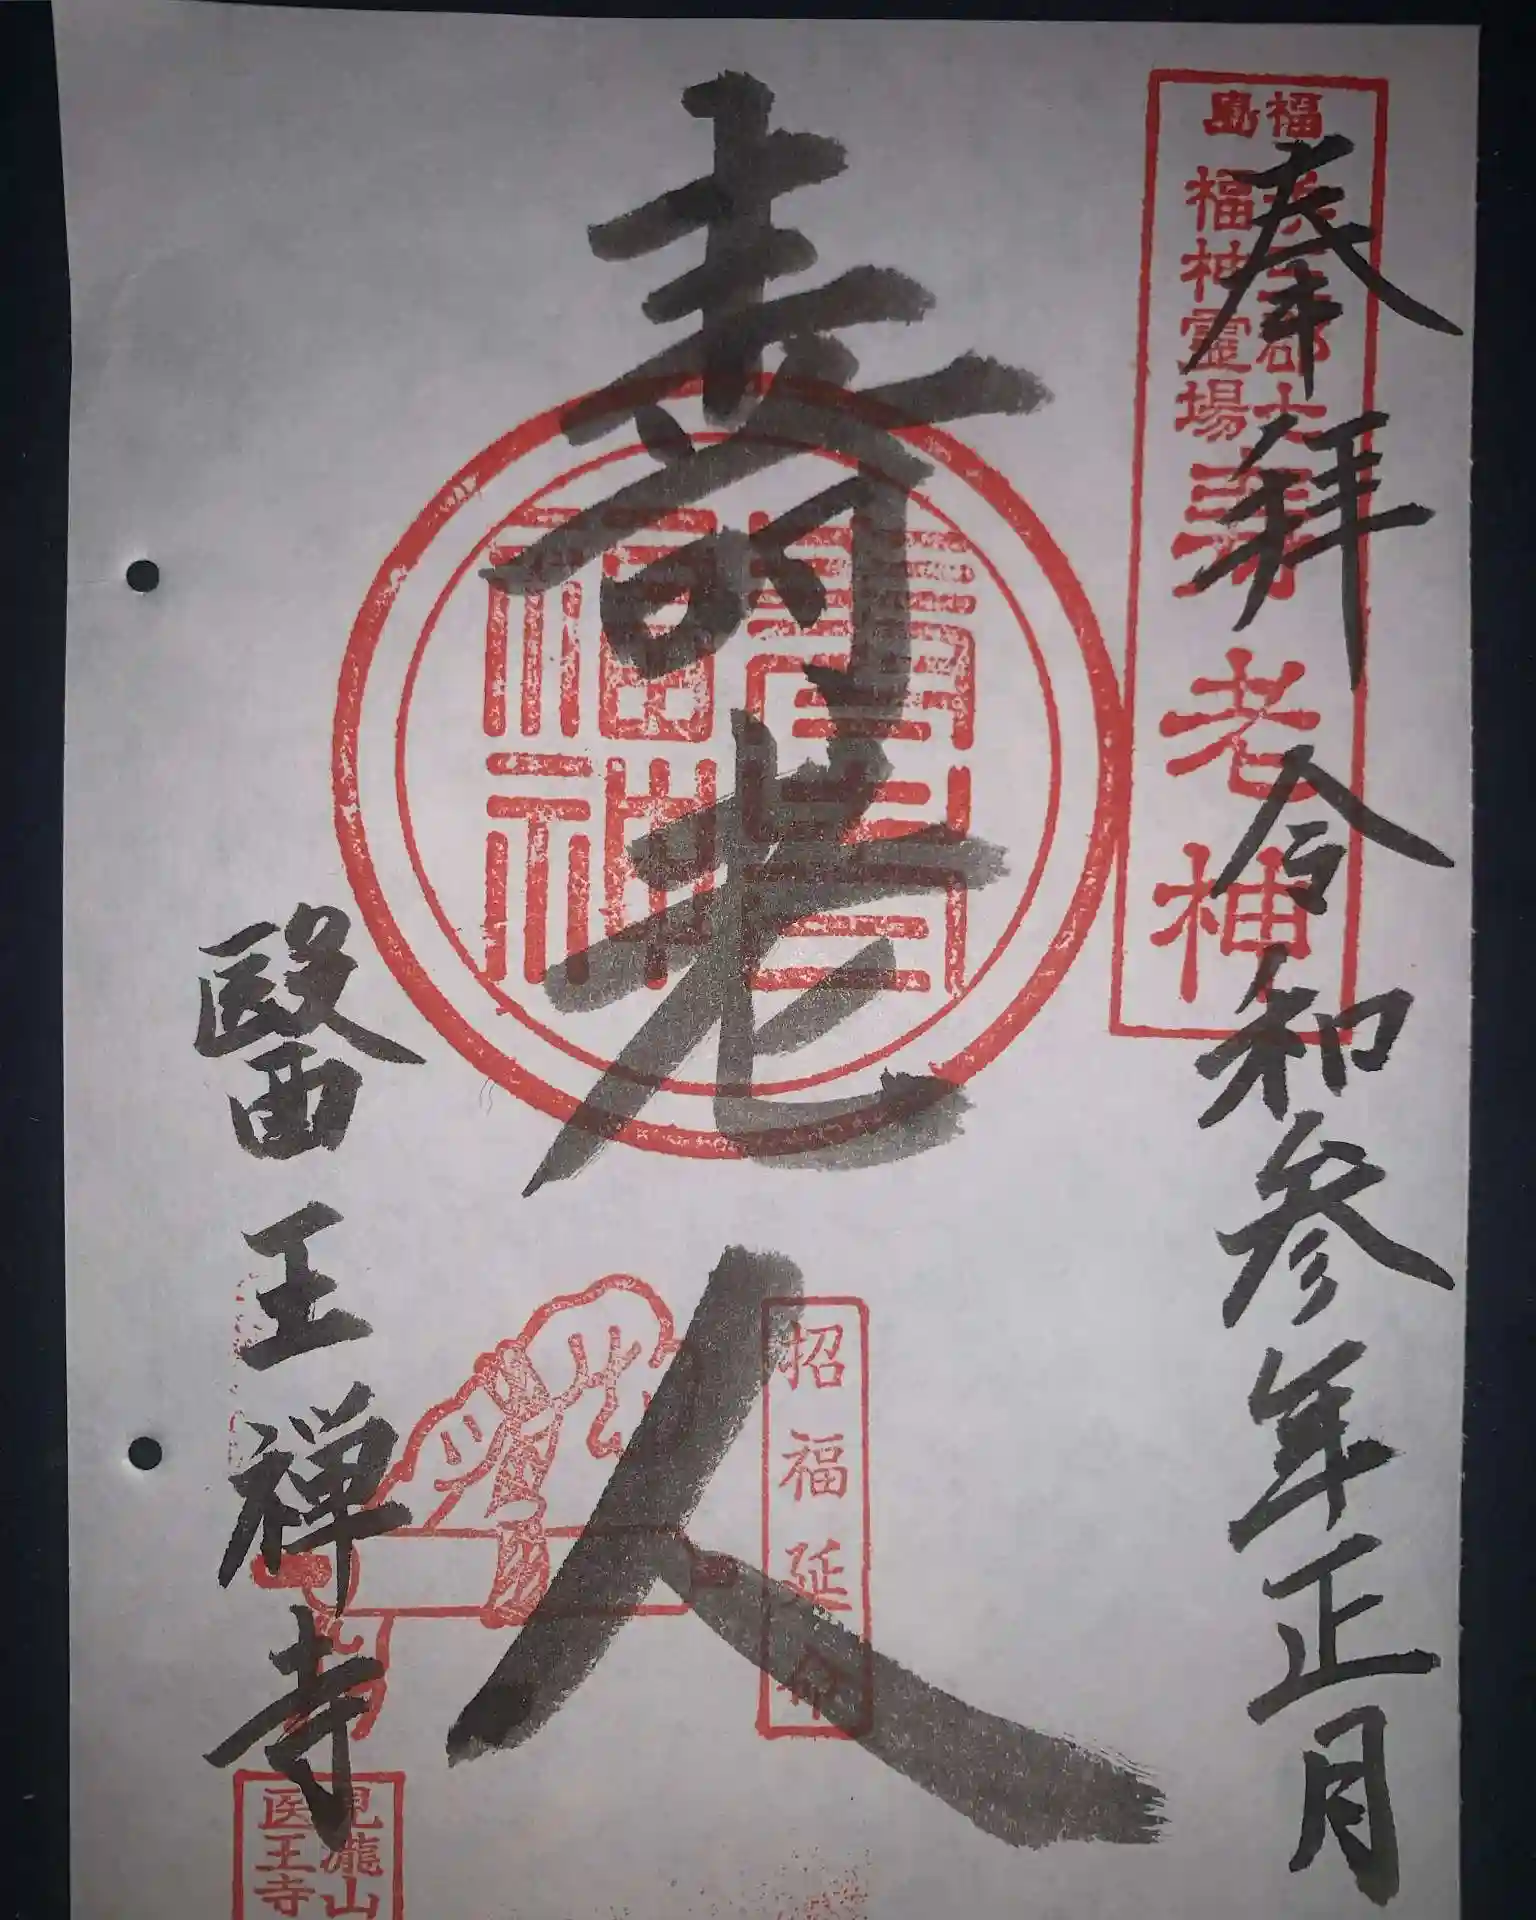 奉拝 令和参年正月
福島
福神霊場
寿老神
寿老人
招福延寿
福神
醫王禅寺
見瀧山
医王寺